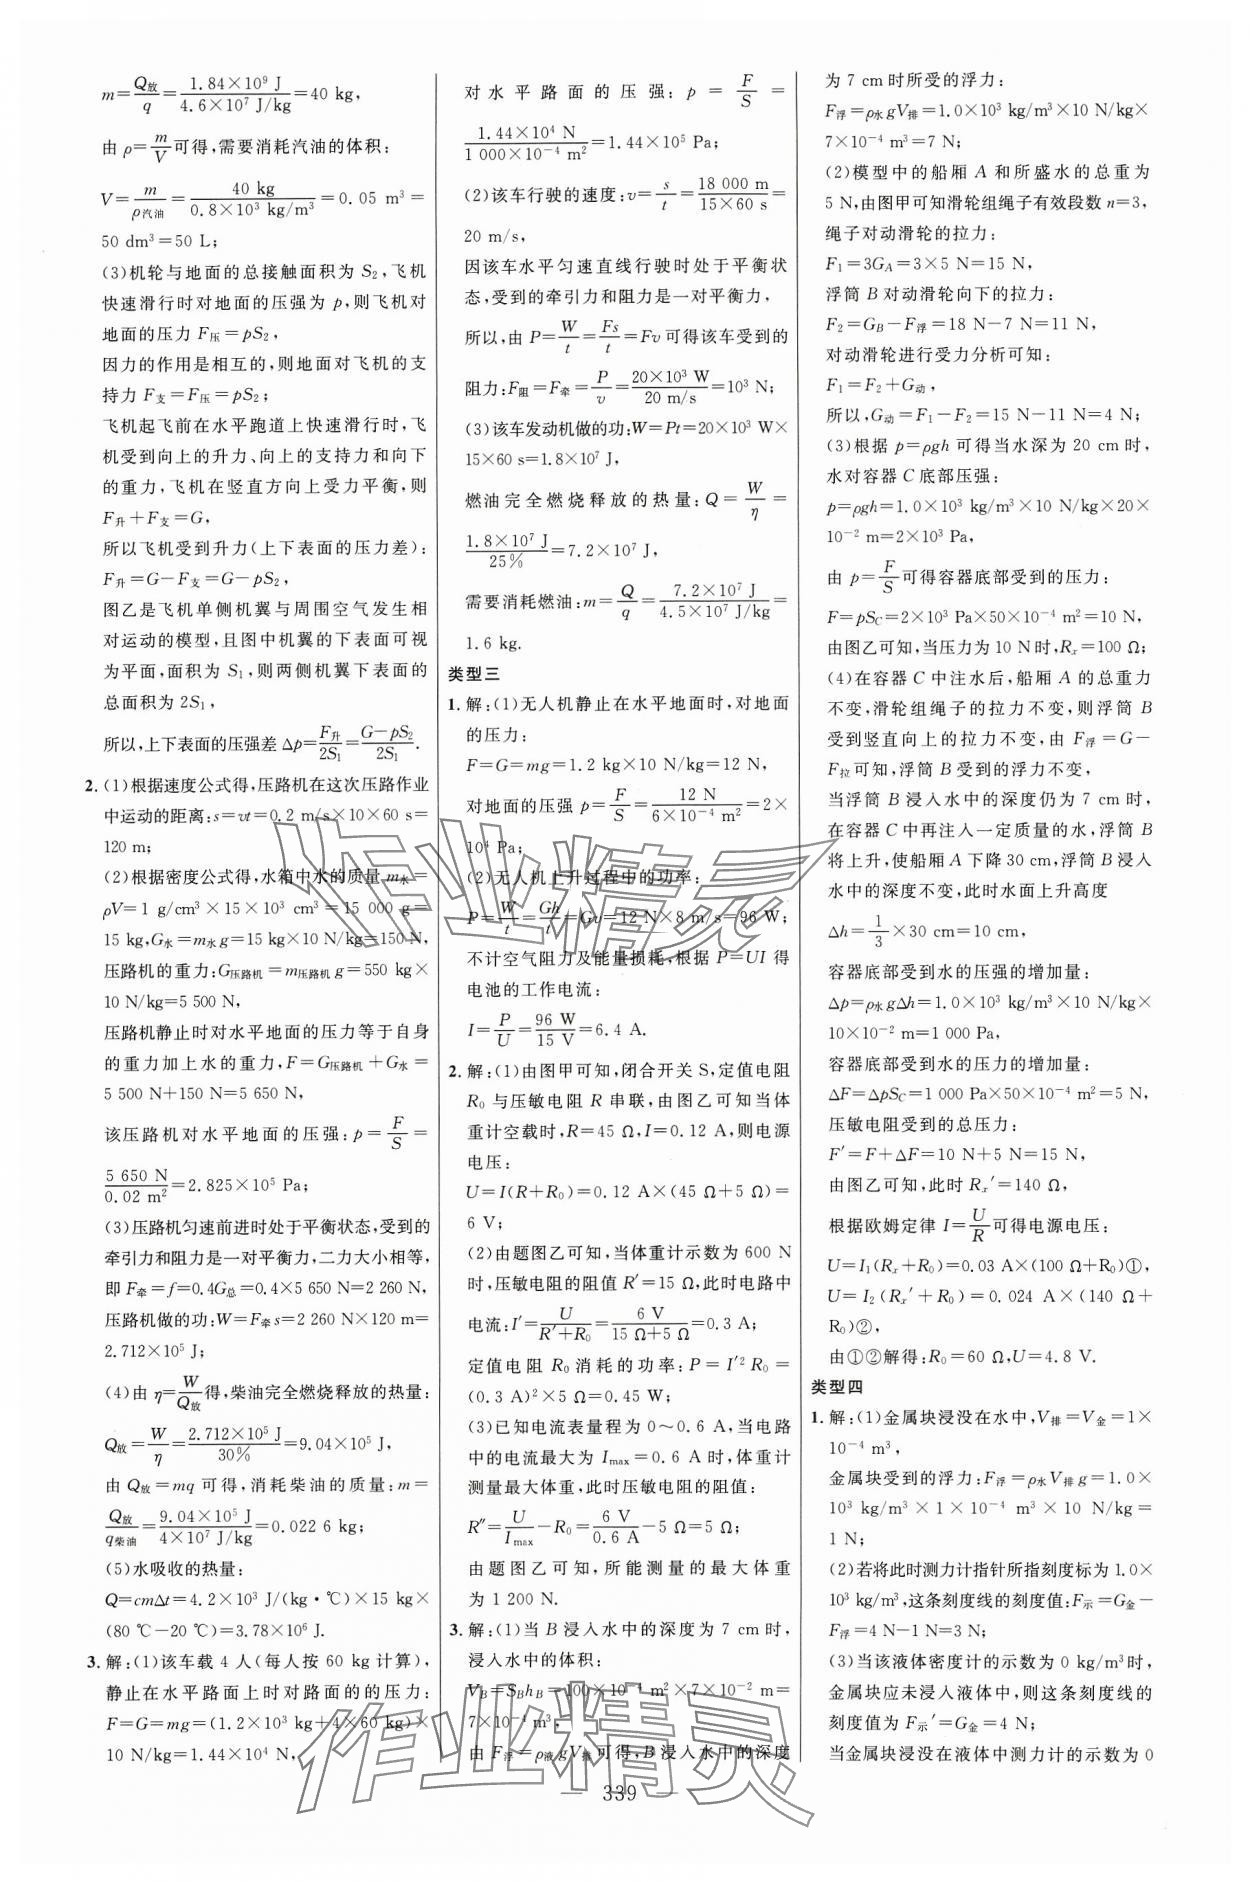 m=Q放/q=1.84×10⁹ J/4.6×10⁷ J/kg=40 kg,
由 ρ=m/V可得,需要消耗汽油的体积:
V=m/ρ汽油=40 kg/0.8×10³ kg/m³=0.05 m³=
50 dm³=50 L;
(3)机轮与地面的总接触面积为 S₂,飞机
快速滑行时对地面的压强为 p,则飞机对
地面的压力 F压=pS₂,
因力的作用是相互的,则地面对飞机的支
持力 F支=F压=pS₂;
飞机起飞前在水平跑道上快速滑行时,飞
机受到向上的升力、向上的支持力和向下
的重力,飞机在竖直方向上受力平衡,则
F升+F支=G,
所以飞机受到升力(上下表面的压力差):
F升=G-F支=G-pS₂,
图乙是飞机单侧机翼与周围空气发生相
对运动的模型,且图中机翼的下表面可视
为平面,面积为 S₁,则两侧机翼下表面的
总面积为 2S₁,
所以,上下表面的压强差 Δp=F升/2S₁=G-pS₂/2S₁.
2. (1)根据速度公式得,压路机在这次压路作业
中运动的距离:s=vt=0.2 m/s×10×60 s=
120 m;
(2)根据密度公式得,水箱中水的质量 m水=
ρV=1 g/cm³×15×10³ cm³=15 000 g=
15 kg,G水=m水g=15 kg×10 N/kg=150 N,
压路机的重力:G压路机=m压路机g=550 kg×
10 N/kg=5 500 N,
压路机静止时对水平地面的压力等于自身
的重力加上水的重力,F=G压路机+G水=
5 500 N+150 N=5 650 N,
该压路机对水平地面的压强:p=F/S=
5 650 N/0.02 m²=2.825×10⁵ Pa;
(3)压路机匀速前进时处于平衡状态,受到的
牵引力和阻力是一对平衡力,二力大小相等,
即 F牵=f=0.4G总=0.4×5 650 N=2 260 N,
压路机做的功:W=F牵s=2 260 N×120 m=
2.712×10⁵ J;
(4)由 η=W/Q放得,柴油完全燃烧释放的热量:
Q放=W/η=2.712×10⁵ J/30%=9.04×10⁵ J,
由 Q放=mq 可得,消耗柴油的质量:m=
Q放/q柴油=9.04×10⁵ J/4×10⁷ J/kg=0.022 6 kg;
(5)水吸收的热量:
Q=cmΔt=4.2×10³ J/(kg·℃)×15 kg×
(80 ℃-20 ℃)=3.78×10⁶ J.
3. 解:(1)该车载 4 人(每人按 60 kg 计算),
静止在水平路面上时对路面的的压力:
F=G=mg=(1.2×10³ kg+4×60 kg)×
10 N/kg=1.44×10⁴ N,
对水平路面的压强:p=F/S=
1.44×10⁴ N/1 000×10⁻⁴ m²=1.44×10⁵ Pa;
(2)该车行驶的速度:v=s/t=18 000 m/15×60 s=
20 m/s,
因该车水平匀速直线行驶时处于平衡状
态,受到的牵引力和阻力是一对平衡力,
所以,由 P=W/t=Fs/t=Fv可得该车受到的
阻力:F阻=F牵=P/v=20×10³ W/20 m/s=10³ N;
(3)该车发动机做的功:W=Pt=20×10³ W×
15×60 s=1.8×10⁷ J,
燃油完全燃烧释放的热量:Q=W/η=
1.8×10⁷ J/25%=7.2×10⁷ J,
需要消耗燃油:m=Q/q=7.2×10⁷ J/4.5×10⁷ J/kg=
1.6 kg.
类型三
1. 解:(1)无人机静止在水平地面时,对地面
的压力:
F=G=mg=1.2 kg×10 N/kg=12 N,
对地面的压强 p=F/S=12 N/6×10⁻⁴ m²=2×
10⁴ Pa;
(2)无人机上升过程中的功率:
P=W/t=Gh/t=Gv=12 N×8 m/s=96 W;
不计空气阻力及能量损耗,根据 P=UI 得
电池的工作电流:
I=P/U=96 W/15 V=6.4 A.
2. 解:(1)由图甲可知,闭合开关 S,定值电阻
R₀ 与压敏电阻 R 串联,由图乙可知当体
重计空载时,R=45 Ω,I=0.12 A,则电源
电压:
U=I(R+R₀)=0.12 A×(45 Ω+5 Ω)=
6 V;
(2)由题图乙可知,当体重计示数为 600 N
时,压敏电阻的阻值 R′=15 Ω,此时电路中
电流:I′=U/R′+R₀=6 V/15 Ω+5 Ω=0.3 A;
定值电阻 R₀ 消耗的功率:P=I′²R₀=
(0.3 A)²×5 Ω=0.45 W;
(3)已知电流表量程为 0~0.6 A,当电路
中的电流最大为 Imax=0.6 A 时,体重计
测量最大体重,此时压敏电阻的阻值:
R″=U/Imax-R₀=6 V/0.6 A-5 Ω=5 Ω;
由题图乙可知,所能测量的最大体重
为 1 200 N.
3. 解:(1)当 B 浸入水中的深度为 7 cm 时,
浸入水中的体积:
VB=SBhB=100×10⁻⁴ m²×7×10⁻² m=
7×10⁻⁴ m³,
由 F浮=ρ液gV排可得,B浸入水中的深度
为 7 cm 时所受的浮力:
F浮=ρ水gV排=1.0×10³ kg/m³×10 N/kg×
7×10⁻⁴ m³=7 N;
(2)模型中的船厢 A 和所盛水的总重为
5 N,由图甲可知滑轮组绳子有效段数 n=3,
绳子对动滑轮的拉力:
F₁=3GA=3×5 N=15 N,
浮筒 B 对动滑轮向下的拉力:
F₂=GB-F浮=18 N-7 N=11 N,
对动滑轮进行受力分析可知:
F₁=F₂+G动,
所以,G动=F₁-F₂=15 N-11 N=4 N;
(3)根据 p=ρgh 可得当水深为 20 cm 时,
水对容器 C 底部压强:
p=ρgh=1.0×10³ kg/m³×10 N/kg×20×
10⁻² m=2×10³ Pa,
由 p=F/S可得容器底部受到的压力:
F=pSC=2×10³ Pa×50×10⁻⁴ m²=10 N,
由图乙可知,当压力为 10 N时,Rx=100 Ω;
(4)在容器 C 中注水后,船厢 A 的总重力
不变,滑轮组绳子的拉力不变,则浮筒 B
受到竖直向上的拉力不变,由 F浮=G-
F拉可知,浮筒 B受到的浮力不变,
当浮筒 B浸入水中的深度仍为 7 cm时,
在容器 C 中再注入一定质量的水,浮筒 B
将上升,使船厢 A 下降 30 cm,浮筒 B浸入
水中的深度不变,此时水面上升高度
Δh=1/3×30 cm=10 cm,
容器底部受到水的压强的增加量:
Δp=ρ水gΔh=1.0×10³ kg/m³×10 N/kg×
10×10⁻² m=1 000 Pa,
容器底部受到水的压力的增加量:
ΔF=ΔpSC=1 000 Pa×50×10⁻⁴ m²=5 N,
压敏电阻受到的总压力:
F′=F+ΔF=10 N+5 N=15 N,
由图乙可知,此时 Rx′=140 Ω,
根据欧姆定律 I=U/R可得电源电压:
U=I₁(Rx+R₀)=0.03 A×(100 Ω+R₀)①,
U=I₂(Rx′+R₀)=0.024 A×(140 Ω+
R₀)②,
由①②解得:R₀=60 Ω,U=4.8 V.
类型四
1. 解:(1)金属块浸没在水中,V排=V金=1×
10⁻⁴ m³,
金属块受到的浮力:F浮=ρ水V排g=1.0×
10³ kg/m³×1×10⁻⁴ m³×10 N/kg=
1 N;
(2)若将此时测力计指针所指刻度标为 1.0×
10³ kg/m³,这条刻度线的刻度值:F示=G金-
F浮=4 N-1 N=3 N;
(3)当该液体密度计的示数为 0 kg/m³时,
金属块应未浸入液体中,则这条刻度线的
刻度值为 F示′=G金=4 N;
当金属块浸没在液体中测力计的示数为 0
— 339 —
作业精灵
作业精灵